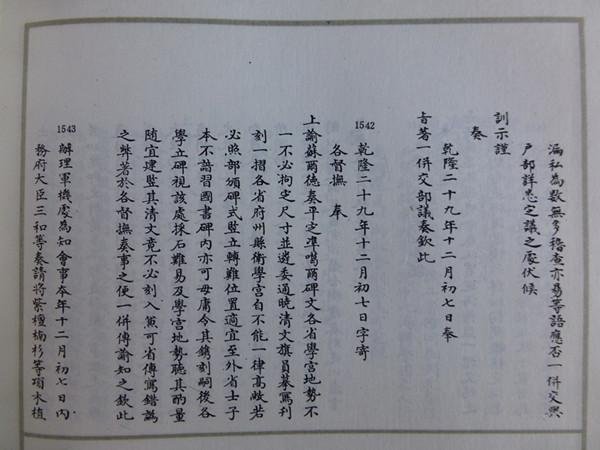 漏私為數無多稽查亦易等語應否一併交與
戶部詳悉定議之處伏候
訓示謹
奏
乾隆二十九年十二月初七日奉
旨著一併交部議奏欽此
1542
乾隆二十九年十二月初七日字寄
各督撫 奉
上諭蘇爾德奏平定準噶爾碑文各省學宮地勢不
一不必拘定尺寸並遴委通曉清文旗員摹寫刊
刻一摺各省府州縣衛學宮自不能一律高敞若
必照部頒碑式豎立轉難位置適宜至外省士子
本不諳習國書碑內亦可毋庸令其鐫刻嗣後各
學立碑視該處採石難易及學宮地勢聽其酌量
隨宜建豎其清文竟不必刻入簡可省傳寫錯譌
之弊著於各督撫奏事之便一併傳諭知之欽此
1543
辦理軍機處為知會事本年十二月初七日內
務府大臣三和等奏請將紫檀楠杉等項木植